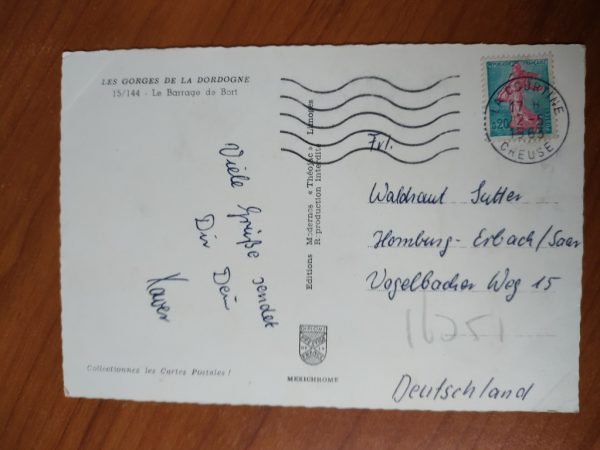 LES GORGES DE LA DORDOGNE
15/144 - Le Barrage de Bort
Viele Grüße sendet
Dir Dein
Xaver
Collectionnez les Cartes Postales !
Editions Modernes « Théojac » Limoges
Reproduction Interdite
MEXICHROME
LA COURTINE
CREUSE
0,20
Frl.
Waldraut Sutter
Homburg-Erbach/Saar
Vogelbacher Weg 15
16251
Deutschland